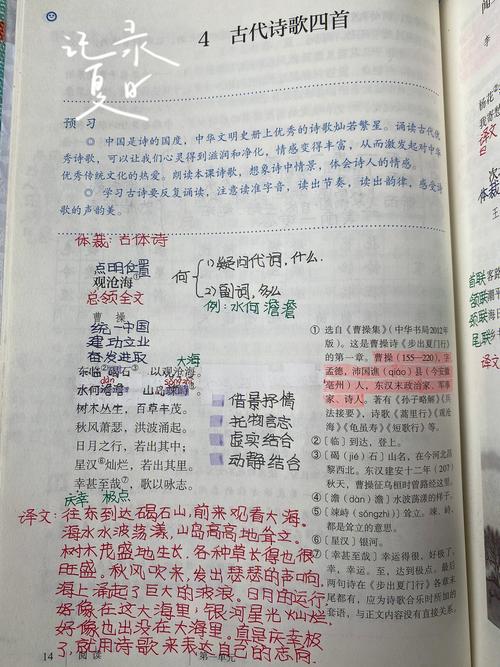 记录
夏日
4 古代诗歌四首
预 习
◎ 中国是诗的国度,中华文明史册上优秀的诗歌灿若繁星。诵读古代优
秀诗歌,可以让我们心灵得到滋润和净化,情感变得丰富,从而激发起对中华
优秀传统文化的热爱。朗读本课诗歌,想象诗中情景,体会诗人的情感。
◎ 学习古诗要反复诵读,注意读准字音,读出节奏,读出韵律,感受诗
歌的声韵美。
体裁:古体诗
点明位置
观沧海①
总领全文
何
1)疑问代词,什么.
2)副词,多么
例:水何澹澹
曹 操
统一中国
建功立业
奋发进取
大海
东临②碣石③,以观沧海。
dàn
sǒngzhì
水何澹澹④,山岛竦峙⑤。
树木丛生,百草丰茂。
秋风萧瑟,洪波涌起。
日月之行,若出其中;
星汉⑥灿烂,若出其里。
幸甚至哉⑦,歌以咏志。
庆幸 极点
借景抒情
托物言志
虚实结合
动静结合
译文:往东到达碣石山,前来观看大海。
海水水波荡漾,山岛高高地耸立。
树木茂盛地生长,各种草长得也很
旺盛。秋风吹来,发出瑟瑟的声响,
海上涌起了巨大的波浪。日月的运行,
好像在这大海里;银河星光灿烂,
好像也出没在大海里。真是庆幸极
了,就用诗歌来表达自己的志向
① 选自《曹操集》(中华书局2012年
版)。这是曹操诗《步出夏门行》
的第一章。曹操(155—220),字
孟德,沛国谯(qiáo)县(今安徽
亳州)人,东汉末政治家、军事
家、诗人。著有《孙子略解》《兵
法接要》,诗歌《蒿里行》《观沧
海》《龟虽寿》《短歌行》等。
②〔临〕到达,登上。
③〔碣(jié)石〕山名,在今河北昌
黎西北。东汉建安十二年(207)
秋天,曹操征乌桓时曾路经这里。
④〔澹(dàn)澹〕水波荡漾的样子。
⑤〔竦峙(sǒngzhì)〕耸立。竦、峙,
都是耸立的意思。
⑥〔星汉〕银河。
⑦〔幸甚至哉〕幸运得很,好极了。
幸,幸运。至,达到极点。最后
两句在《步出夏门行》各章末
尾都有,应为诗歌合乐时所加的
套语,与正文内容没有直接关系。
14 阅 读 第一单元
杨花
我寄愁
译文
次
体裁
王
首联
颔联
颈联
尾联
译